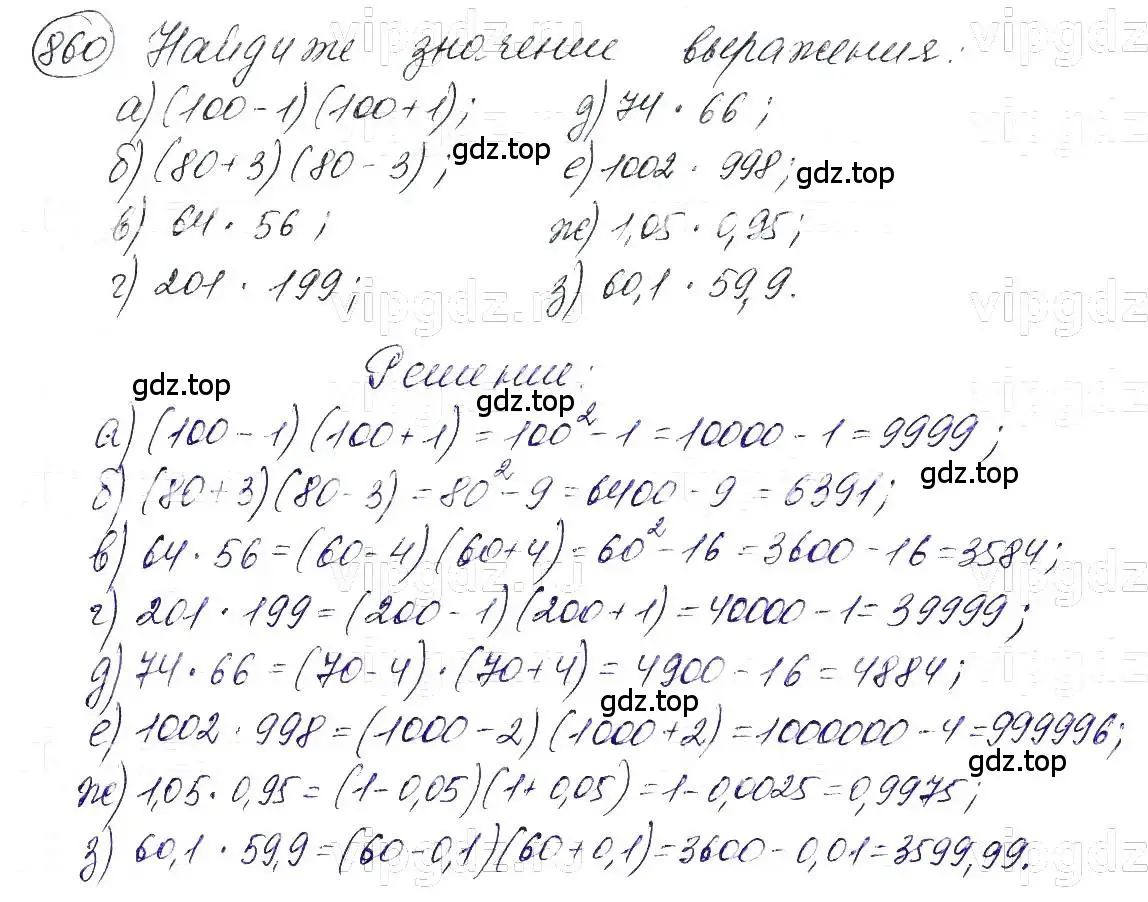 860 Найдите значение выражения:
а) (100 - 1)(100 + 1);
д) 74 · 66;
б) (80 + 3)(80 - 3);
е) 1002 · 998;
в) 64 · 56;
ж) 1,05 · 0,95;
г) 201 · 199;
з) 60,1 · 59,9.
Решение:
а) (100 - 1)(100 + 1) = 100² - 1 = 10000 - 1 = 9999;
б) (80 + 3)(80 - 3) = 80² - 9 = 6400 - 9 = 6391;
в) 64 · 56 = (60 - 4)(60 + 4) = 60² - 16 = 3600 - 16 = 3584;
г) 201 · 199 = (200 - 1)(200 + 1) = 40000 - 1 = 39999;
д) 74 · 66 = (70 - 4) · (70 + 4) = 4900 - 16 = 4884;
е) 1002 · 998 = (1000 - 2)(1000 + 2) = 1000000 - 4 = 999996;
ж) 1,05 · 0,95 = (1 - 0,05)(1 + 0,05) = 1 - 0,0025 = 0,9975;
з) 60,1 · 59,9 = (60 - 0,1)(60 + 0,1) = 3600 - 0,01 = 3599,99.
gdz.top
gdz.top
gdz.top
gdz.top
gdz.top
gdz.top
gdz.top
vipgdz.ru
vipgdz
vipgdz.ru
vipgdz
vipgdz.ru
vipgdz
vipgdz.ru
vipgdz